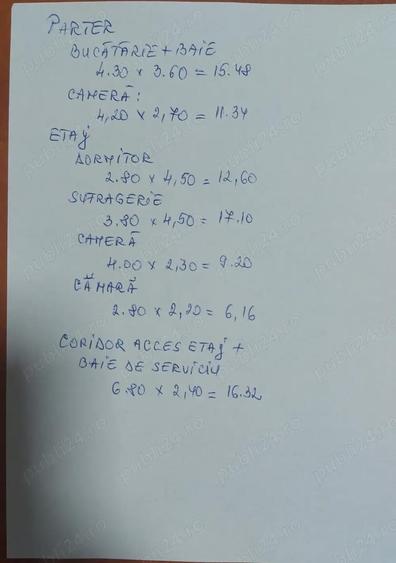 PARTER
BUCĂTĂRIE + BAIE
4.30 x 3.60 = 15.48
CAMERĂ:
4,20 x 2,70 = 11.34
ETAJ
DORMITOR
2.80 x 4,50 = 12,60
SUFRAGERIE
3.80 x 4,50 = 17.10
CAMERĂ
4.00 x 2,30 = 9.20
CĂMARĂ
2.80 x 2,20 = 6,16
CORIDOR ACCES ETAJ +
BAIE DE SERVICIU
6.80 x 2,40 = 16.32
publi24.ro